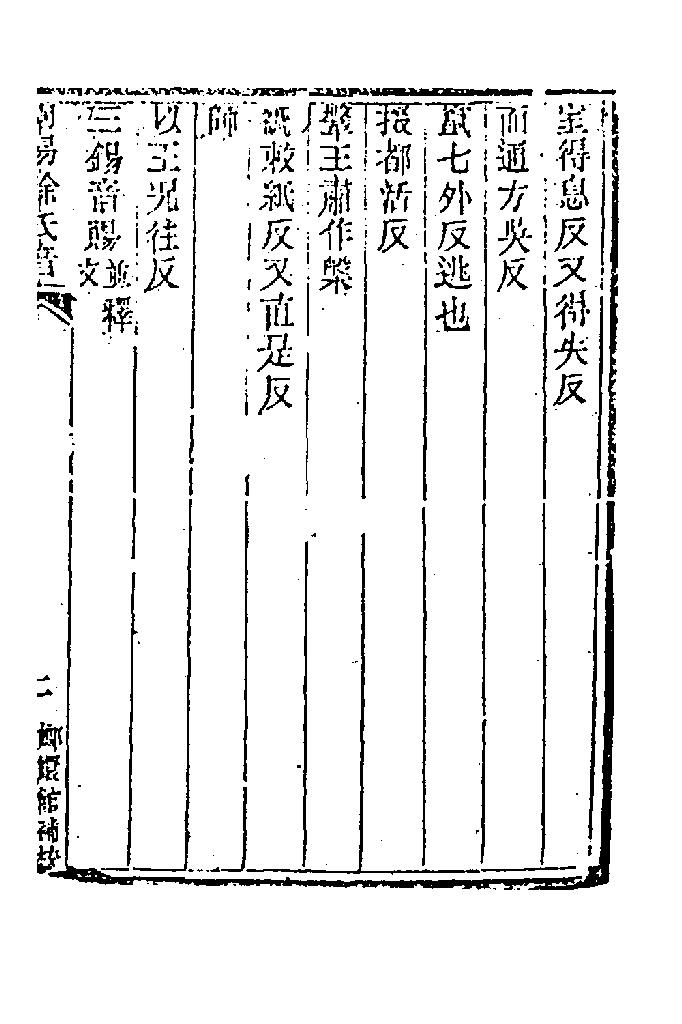 窒得息反又得失反
而逋方吳反
竄七外反逃也
掇都活反
鞶王肅作槃
褫敕紙反又直是反
師
以王况往反
三錫音賜並釋文
周易徐氏音
二
嫏嬛館補校